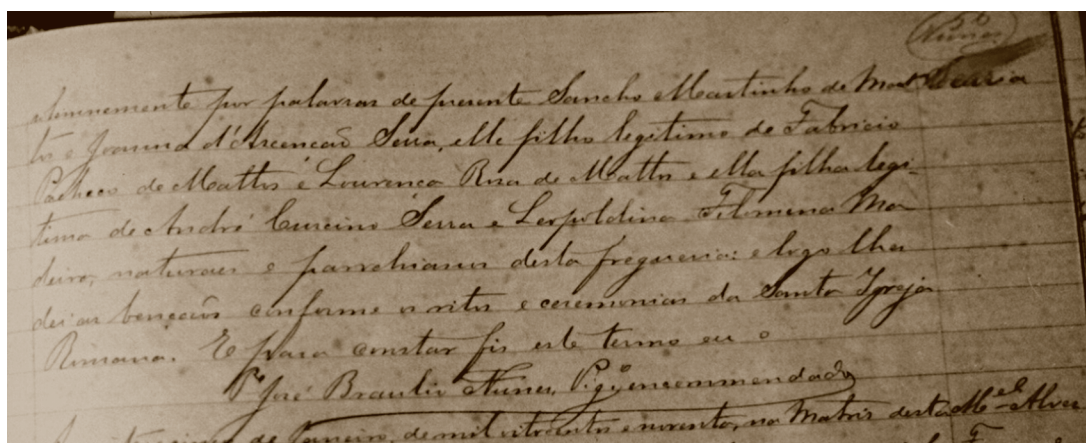 Nunes
solemnemente por palavras de presente Sancho Martinho de Mat
tos e Joanna d'Ascenção Serra, elle filho legitimo de Fabricio
Pacheco de Mattos e Lourença Rosa de Mattos e ella filha legi-
tima de André Curcino Serra e Leopoldina Filomena Ma
deira, naturaes e parochianos desta freguesia: e logo lhes
dei as bençoẽs conforme os ritos e ceremonias da Santa Igreja
Romana. E para constar fis este termo eu o
Pe José Braulio Nunes, Vigo encommendado
de Janeiro, de mil oitocentos e noventa, na Matris desta Mel Alves